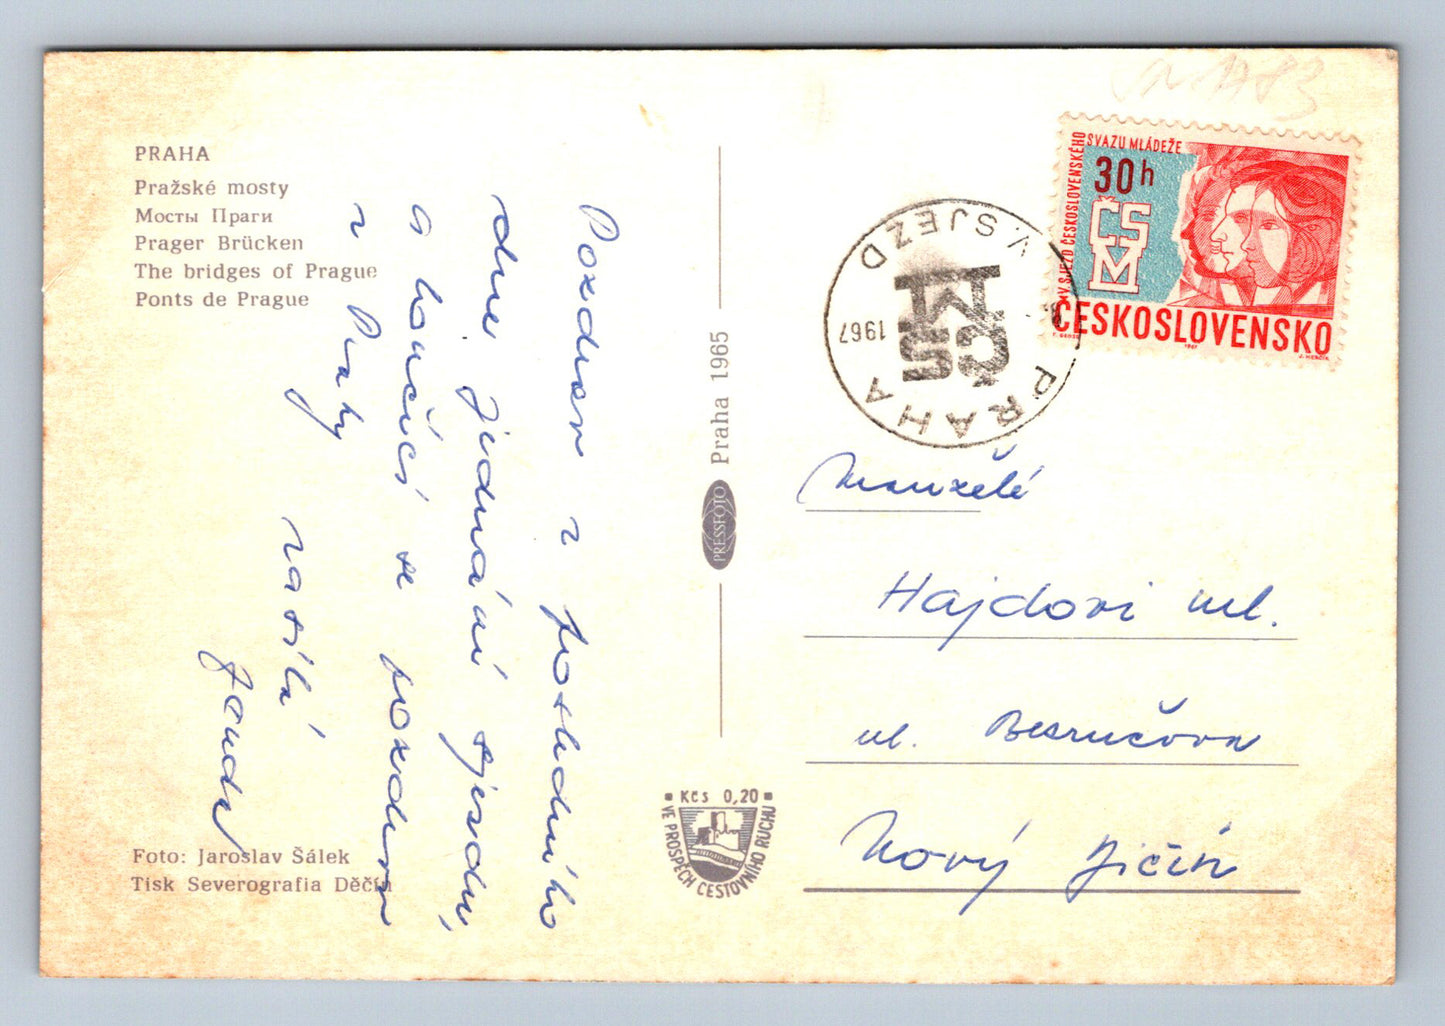 PRAHA
Pražské mosty
Мосты Праги
Prager Brücken
The bridges of Prague
Ponts de Prague
Pozdrav z posledního
dne jednání sjezdu,
a loučící se pozdrav
z Prahy
zasílá
Foto: Jaroslav Šálek
Tisk Severografia Děčín
Praha 1965
PRESSFOTO
Kčs 0,20
VE PROSPĚCH CESTOVNÍHO RUCHU
V. SJEZD
ČSM
1967
PRAHA
V. SJEZD ČESKOSLOVENSKÉHO
SVAZU MLÁDEŽE
30h
ČSM
ČESKOSLOVENSKO
1967
J. HERČÍK
Manželé
Hajdovi ml.
ul. Bezručova
Nový Jičín